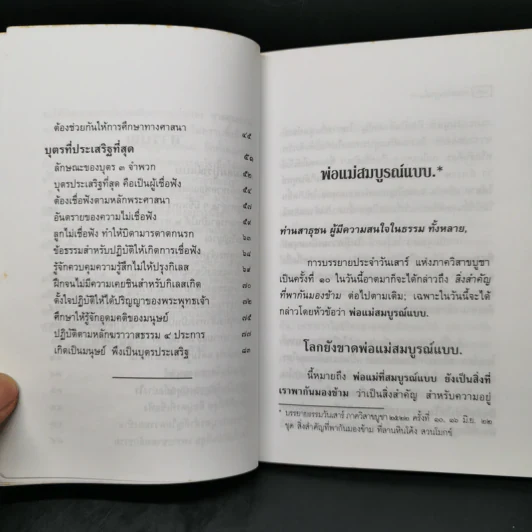 ต้องช่วยกันให้การศึกษาทางศาสนา ๔๕
บุตรที่ประเสริฐที่สุด ๕๑
ลักษณะของบุตร ๓ จำพวก ๕๒
บุตรประเสริฐที่สุด คือเป็นผู้เชื่อฟัง ๕๔
ต้องเชื่อฟังตามหลักพระศาสนา ๕๘
อันตรายของความไม่เชื่อฟัง ๖๔
ลูกไม่เชื่อฟัง ทำให้บิดามารดาตกนรก ๖๖
ข้อธรรมสำหรับปฏิบัติให้เกิดการเชื่อฟัง
รู้จักควบคุมความรู้สึกไม่ให้ปรุงกิเลส
ฝึกจนไม่มีความเคยชินสำหรับกิเลสเกิด
ตั้งใจปฏิบัติให้ได้ปริญญาของพระพุทธเจ้า ๗๒
ศึกษาให้รู้จักอุดมคติของมนุษย์
ปฏิบัติตามหลักฆราวาสธรรม ๔ ประการ ๗๗
เกิดเป็นมนุษย์ พึงเป็นบุตรประเสริฐ ๘๓
พ่อแม่สมบูรณ์แบบ.*
ท่านสาธุชน ผู้มีความสนใจในธรรม ทั้งหลาย,
การบรรยายประจำวันเสาร์ แห่งภาควิสาขบูชา
เป็นครั้งที่ ๑๐ ในวันนี้อาตมาก็จะได้กล่าวถึง สิ่งสำคัญ
ที่พากันมองข้าม ต่อไปตามเดิม; เฉพาะในวันนี้จะได้
กล่าวโดยหัวข้อว่า พ่อแม่สมบูรณ์แบบ.
โลกยังขาดพ่อแม่สมบูรณ์แบบ.
นี้หมายถึง พ่อแม่ที่สมบูรณ์แบบ ยังเป็นสิ่งที่
เราพากันมองข้าม ว่าเป็นสิ่งสำคัญ สำหรับความอยู่
* บรรยายธรรมวันเสาร์ ภาควิสาขบูชา ๒๕๒๒ ครั้งที่ ๑๐, มิ.ย. ๒๒
ชุด สิ่งสำคัญที่พากันมองข้าม ที่ลานหินโค้ง สวนโมกข์